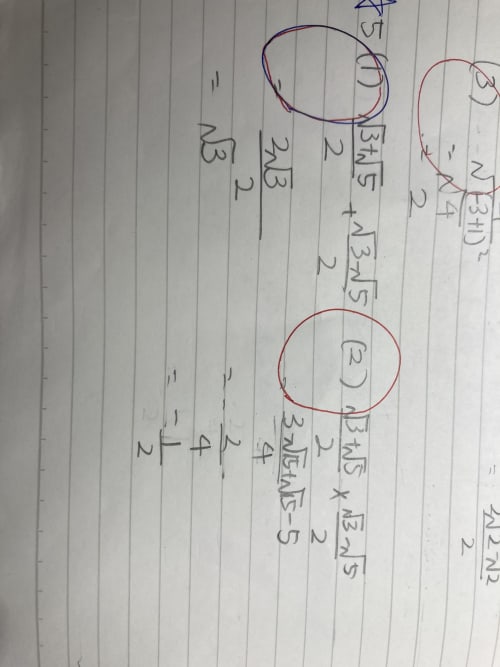 (3) √(-3+1)²
= √4
= 2
= 3√2-√2 / 2
☆5 (1) √3+√5 / 2 + √3-√5 / 2
= 2√3 / 2
= √3
(2) √3+√5 / 2 × √3-√5 / 2
= 3-√15+√15-5 / 4
= -2 / 4
= -1 / 2